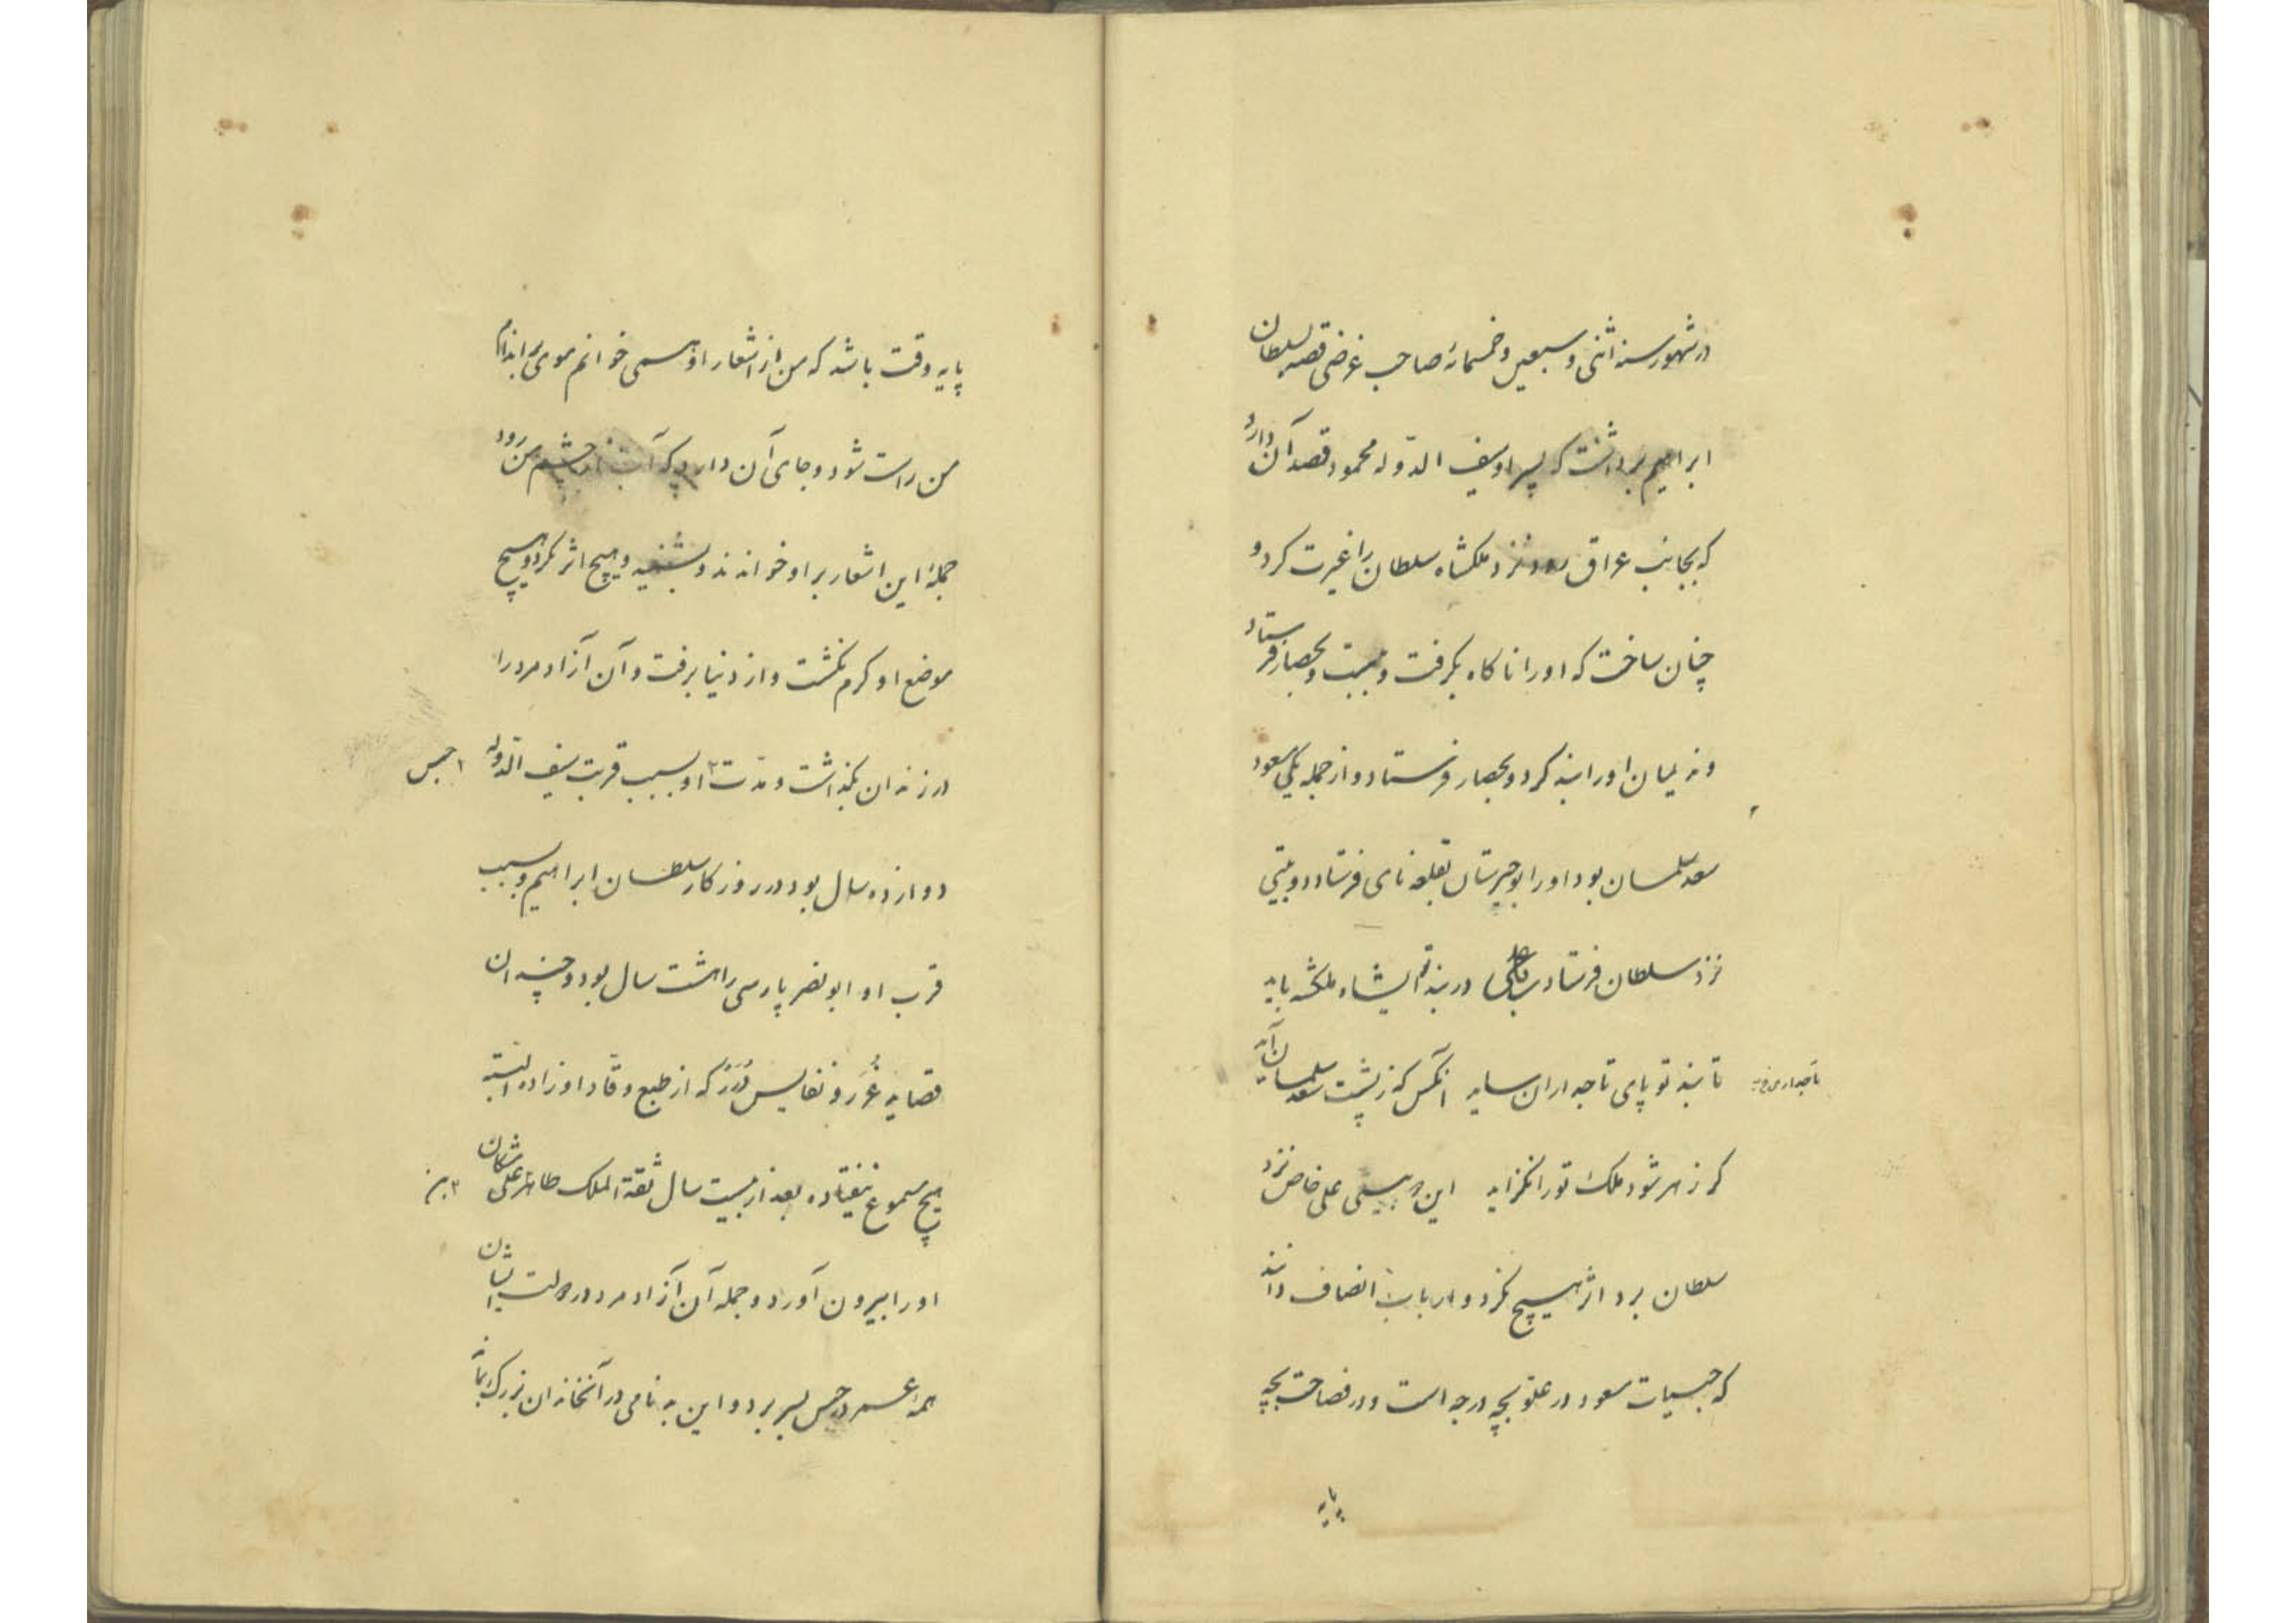 در شهور سنه اثنی و سبعین و خمسمائه صاحب غرضی قصه بسلطان
ابراهیم برداشت که پسر او سیف الدوله محمود قصد آن دارد
که بجانب عراق رود نزد ملکشاه سلطان را غیرت کرد و
چنان ساخت که اورا ناکاه بکرفت و ببست و بحصار فرستاد
و ندیمان اورا بند کرد و بحصار فرستاد و از جمله یکی مسعود
سعد سلمان بود اورا بوجیرستان بقلعه نای فرستاد دو بیتی
نزد سلطان فرستاد در بند تو ایشاه ملکشه باید
تا بند تو پای تاجداران ساید آنکس که ز پشت سعد سلمان آید
تاجداری
کر زهر شود ملک تورا نکزاید این دو بیتی علی خاص نزد
سلطان برد اثر هیچ نکرد و ارباب انصاف دانند
که حبسیات مسعود در علو بچه درجه است و در فصاحت بچه
پایه
پایه وقت باشد که من از اشعار او همی خوانم موی بر اندام
من راست شود و جای آن دارد که آب از چشم من رود
جمله این اشعار بر او خواندند و بشنید و هیچ اثر نکرد و بهیچ
موضع او کرم نکشت و از دنیا برفت و آن آزاد مرد را
در زندان بکذاشت و مدت ۲ او بسبب قربت سیف الدوله
۲ حبس
دوازده سال بود در روزکار سلطان ابراهیم و بسبب
قرب او ابو نصر پارسی را هشت سال بود و چندان
قصاید غُرَر و نفایس دُرَر که از طبع وقاد او زاده البته
هیچ مسموع نیفتاده بعد از بیست سال ثقة الملک طاهر علی مشکان
اورا بیرون آورد و جمله آن آزاد مرد در دولت ایشان
همه عمر در حبس بسر برد و این بدنامی در آنخاندان بزرک بماند